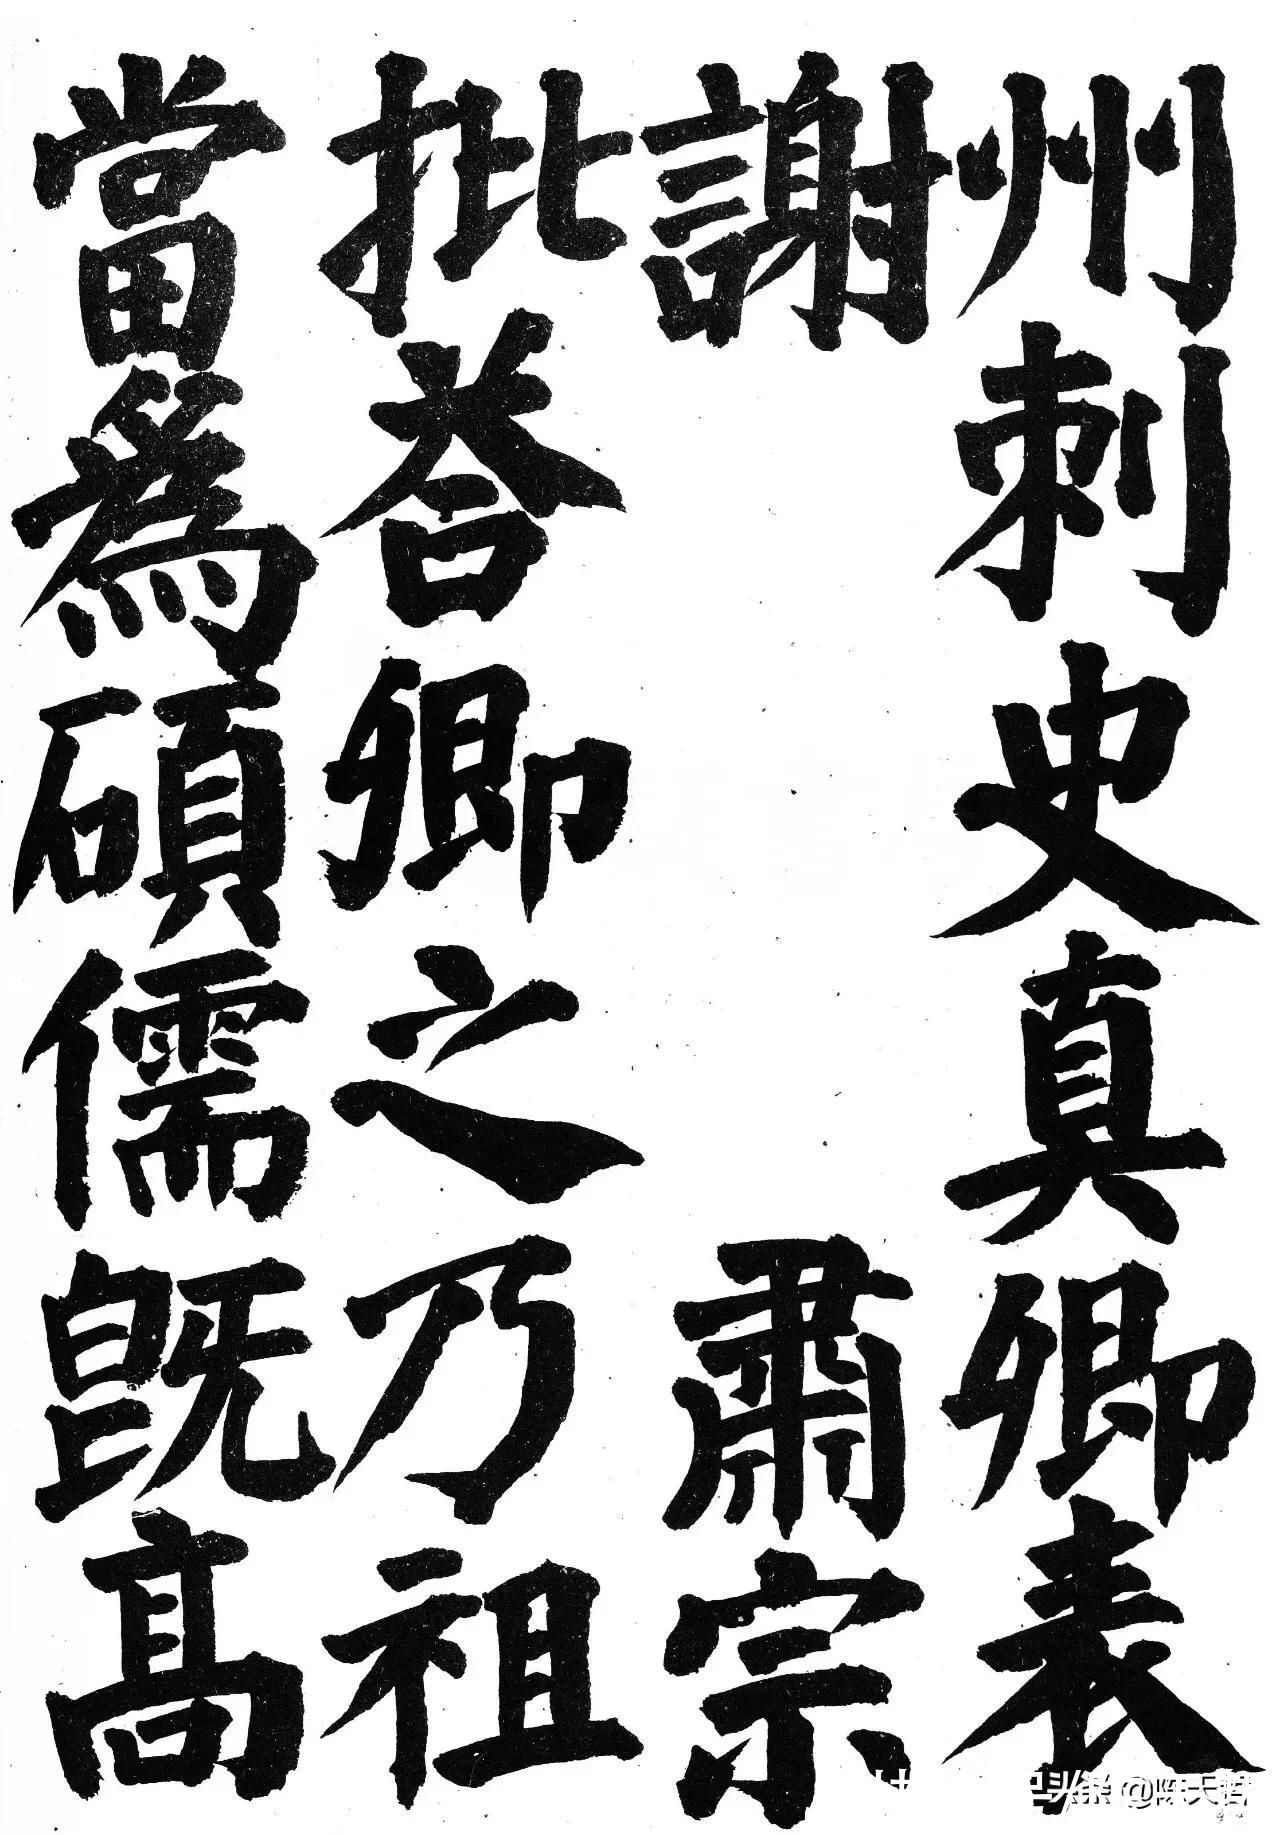 州刺史真卿表
謝肅宗
批荅卿之乃祖
當爲碩儒既髙